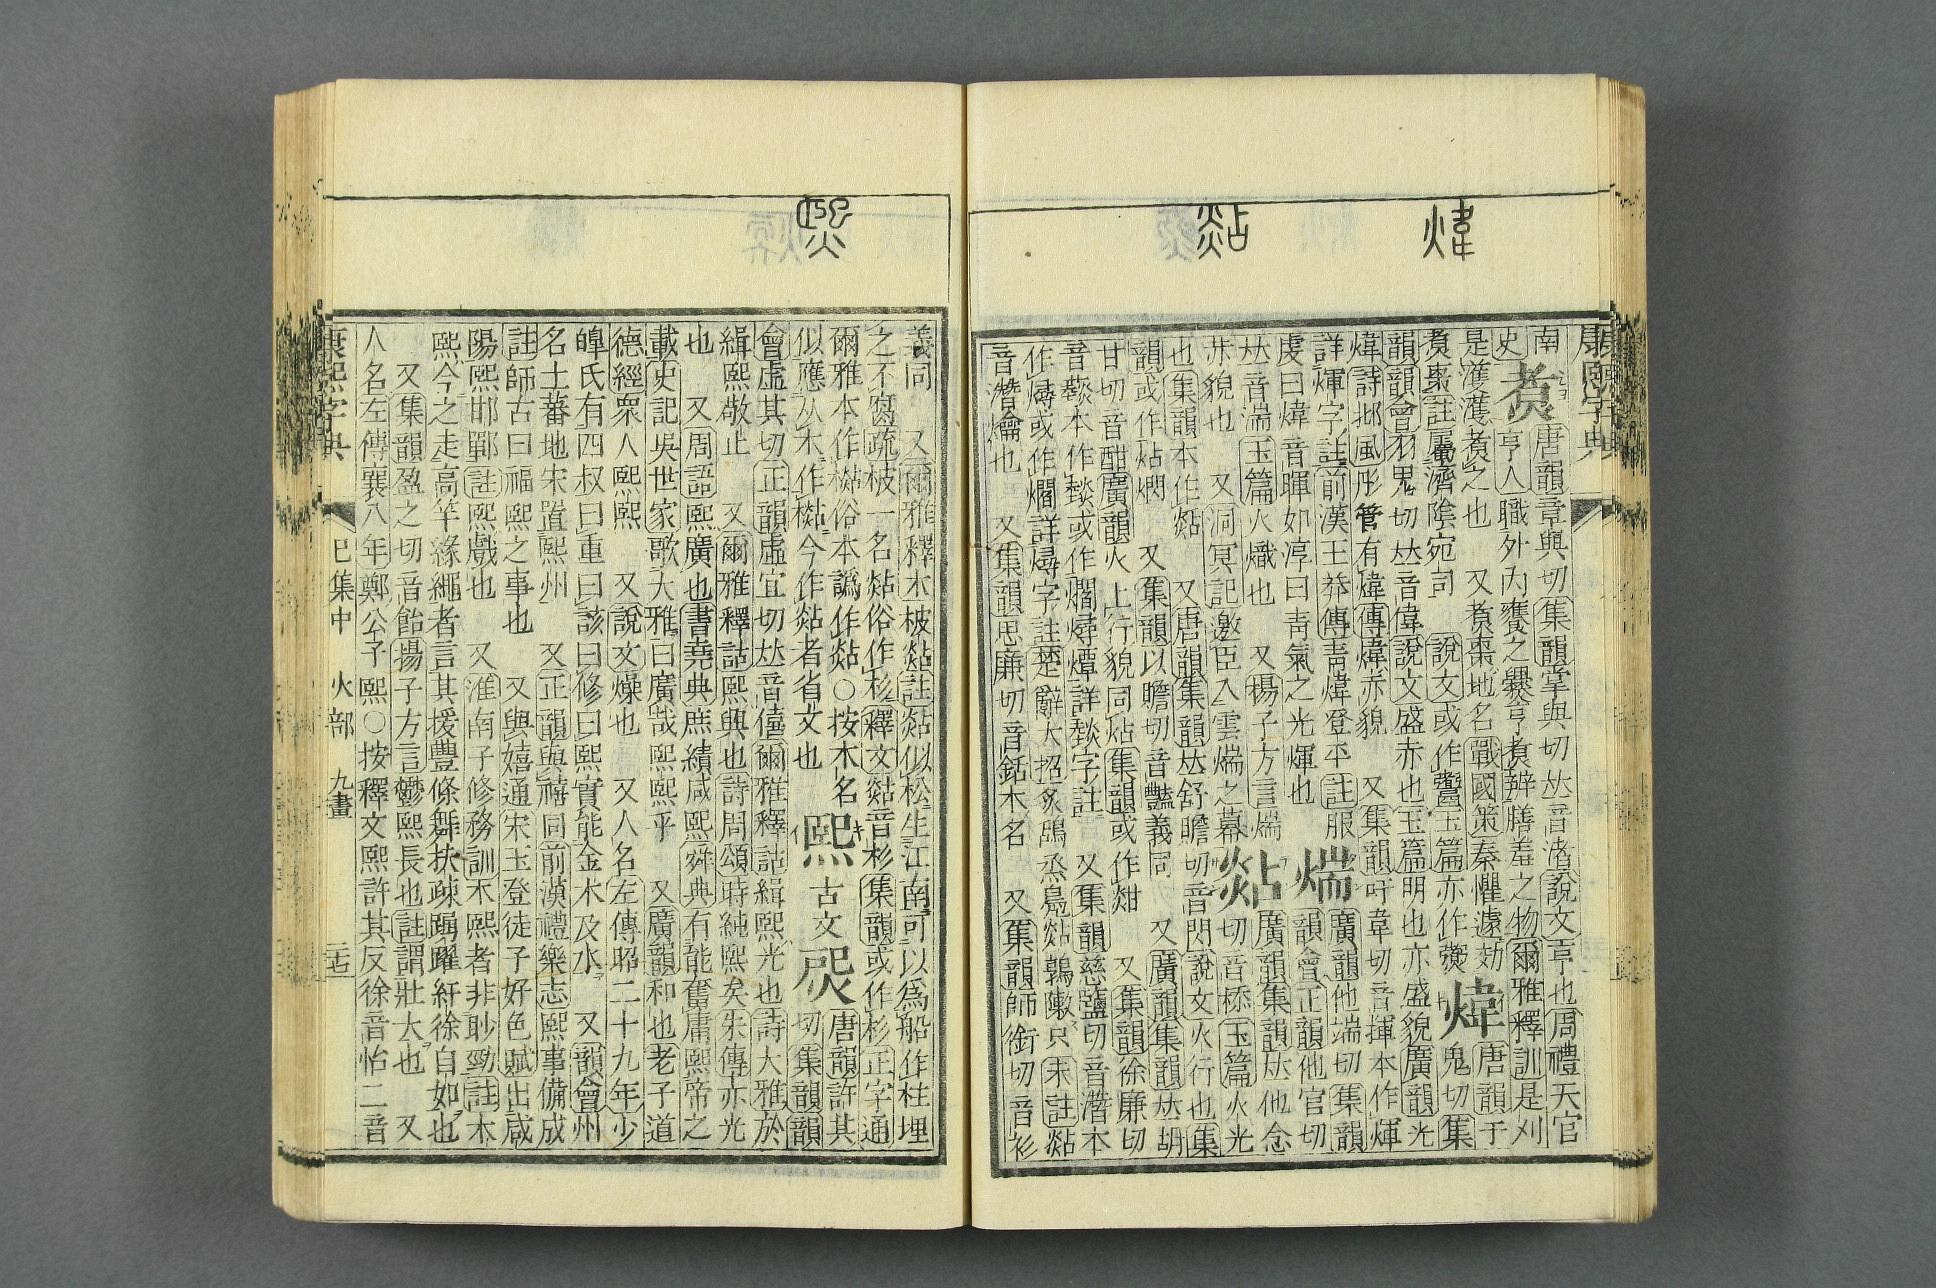 煒
煔
熙
康熙字典
南 唐韻章與切集韻掌與切𠀤音渚說文亨也周禮天官
史 煑 亨人職外內饔之爨亨煑辨膳羞之物爾雅釋訓是刈
是濩濩煑之也 又煑棗地名戰國策秦懼遽効 煒 唐韻于
煑棗註屬濟陰宛句 說文或作䰞玉篇亦作 鬼切集
韻韻會羽鬼切𠀤音偉說文盛赤也玉篇明也亦盛貌廣韻光
煒詩邶風彤管有煒傳煒赤貌 又集韻吁韋切音揮本作煇
詳煇字註前漢王莽傳靑煒登平註服 煓 廣韻他端切集韻
虔曰煒音暉如淳曰靑氣之光煇也 韻會正韻他官切
𠀤音湍玉篇火熾也 又揚子方言煓 煔 廣韻集韻𠀤他念
赤貌也 又洞冥記邀臣入雲煓之幕 切音㮇玉篇火光
也集韻本作煔 又唐韻集韻𠀤舒贍切音閃說文火行也集
韻或作炶燗 又集韻以贍切音豔義同 又廣韻集韻𠀤胡
甘切音酣廣韻火上行貌同炶集韻或作㶰 又集韻徐廉切
音燅本作燅或作爓燖燂詳燅字註 又集韻慈鹽切音潛本
作燖或作爓詳燖字註楚辭大招炙鴰烝鳧煔鶉敶只朱註煔
音潛爚也 又集韻思廉切音銛木名 又集韻師銜切音衫
義同 又爾雅釋木柀煔註煔似松生江南可以爲船作柱埋
之不腐疏柀一名煔俗作杉釋文煔音杉集韻或作杉正字通
爾雅本作㯳俗本譌作煔○按木名 熙 古文 𤇴 唐韻許其
似應从木作㯳今作煔者省文也 切集韻韻
會虛其切正韻虛宜切𠀤音僖爾雅釋詁緝熙光也詩大雅於
緝熙敬止 又爾雅釋詁熙興也詩周頌時純熙矣朱傳亦光
也 又周語熙廣也書堯典庶績咸熙舜典有能奮庸熙帝之
載史記吳世家歌大雅曰廣哉熙熙乎 又廣韻和也老子道
德經衆人熙熙 又說文燥也 又人名左傳昭二十九年少
皡氏有四叔曰重曰該曰修曰熙實能金木及水 又韻會州
名土蕃地宋置熙州 又正韻與禧同前漢禮樂志熙事備成
註師古曰福熙之事也 又與嬉通宋玉登徒子好色賦出咸
陽熙邯鄲註熙戲也 又淮南子修務訓木熙者非眇勁註木
熙今之走高竿緣繩者言其援豐條舞扶疎躡躍紆徐自如也
又集韻盈之切音飴揚子方言鬱熙長也註謂壯大也 又
人名左傳襄八年鄭公子熙○按釋文熙許其反徐音怡二音
康熙字典 巳集中 火部 九畫